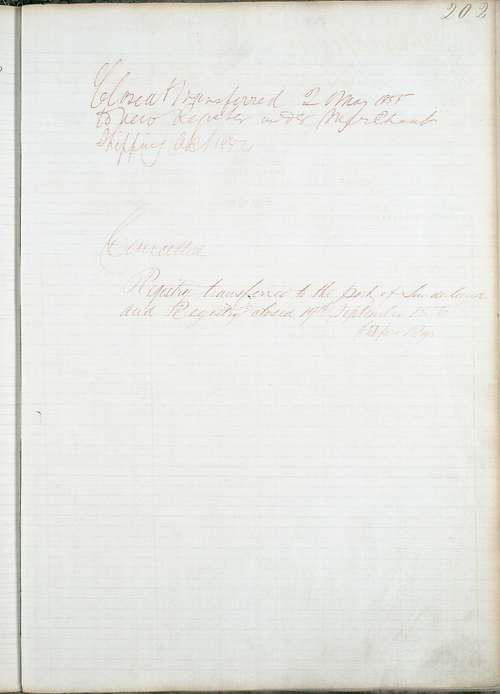 202
Closed & Transferred 2 May 1855
to new Register under Merchant
Shipping Act
Cancelled
Registry transferred to the port of Sunderland
and Registry closed 19th September